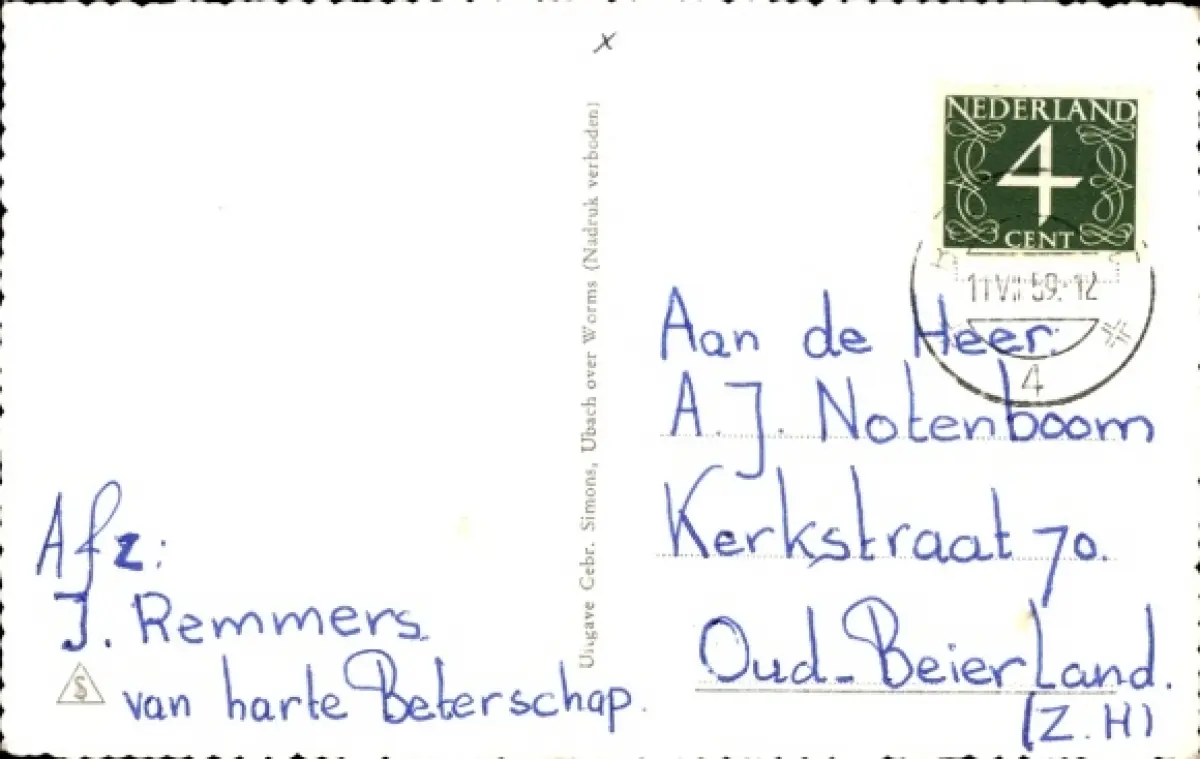 x
NEDERLAND
4
CENT
59.12
4
Uitgave Gebr. Simons, Ubach over Worms (Nadruk verboden)
Aan de Heer:
A.J. Notenboom
Kerkstraat 70.
Oud-Beierland.
(Z.H)
Afz:
J. Remmers.
S
van harte Beterschap.